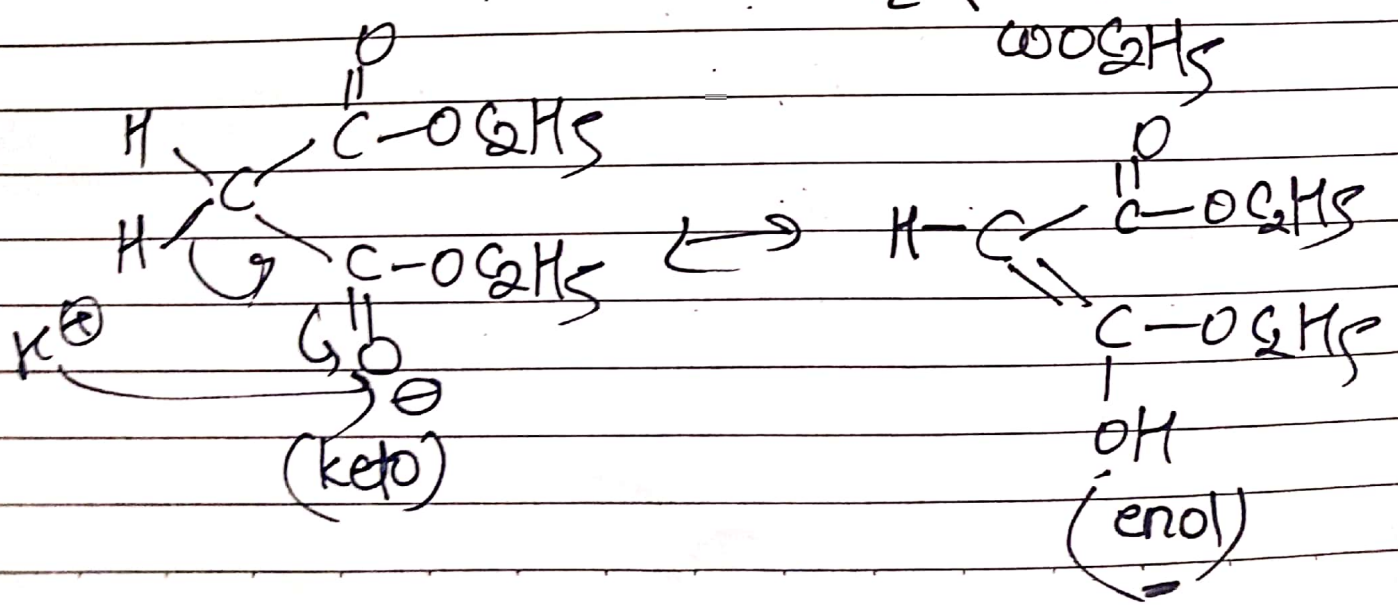 COOC2H5
O
H C-OC2H5
C
H C-OC2H5
K⊕ O
⊖
(keto)
O
C-OC2H5
H-C
C-OC2H5
OH
(enol)